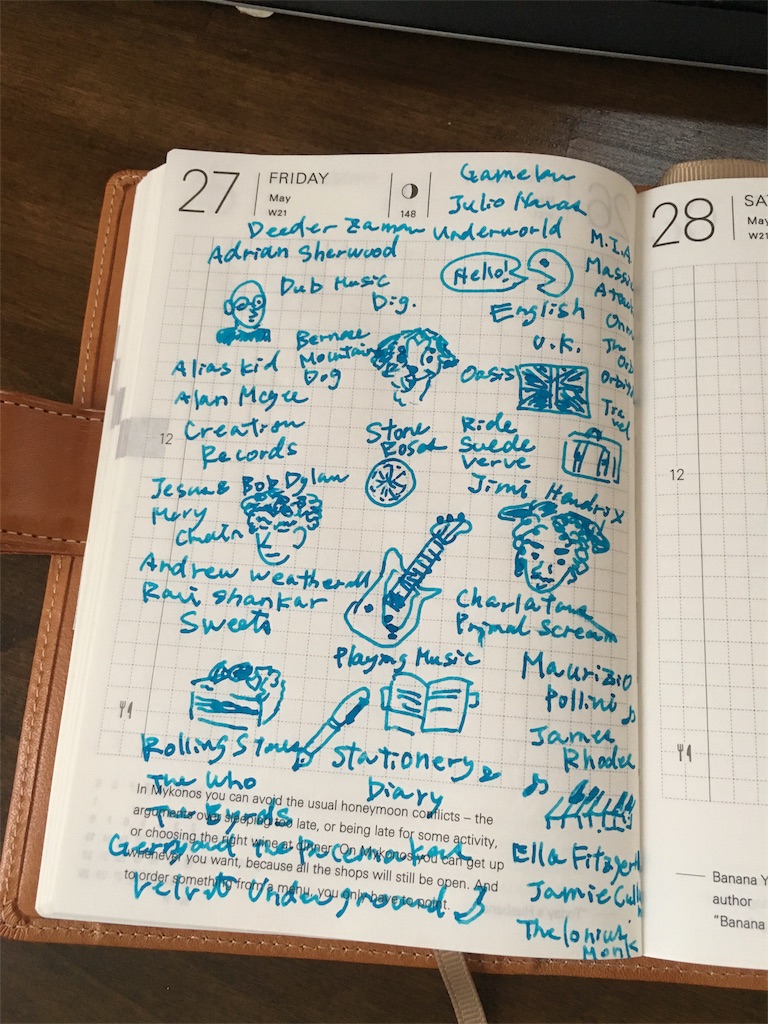 27
FRIDAY
May
W21
148
Julio
Deeder Zaman
Underworld
Adrian Sherwood
M.I.A
Hello!
Dub Music
Dig.
English
U.K.
Bernese
Mountain
Dog
Alias Kid
Alan Mcgee
Creation
Records
Oasis
Travel
12
Stone
Roses
Ride
Suede
Verve
Jesus &
Mary
Chain
Bob Dylan
Jimi Hendrix
Andrew Weatherall
Ravi Shankar
Sweets
Charlatans
Primal Scream
Playing Music
Maurizio
Pollini
James
Rhodes
Rolling Stones
The Who
The Byrds
Stationery &
Diary
In Mykonos you can avoid the usual honeymoon conflicts – the
arguments over sleeping too late, or being late for some activity,
or choosing the right wine at dinner. On Mykonos you can get up
whenever you want, because all the shops will still be open. And
to order something from a menu, you only have to point.
Velvet Underground
Ella
Jamie
Thelonius
Monk
28
May
W21
12
Banana
author
"Banana